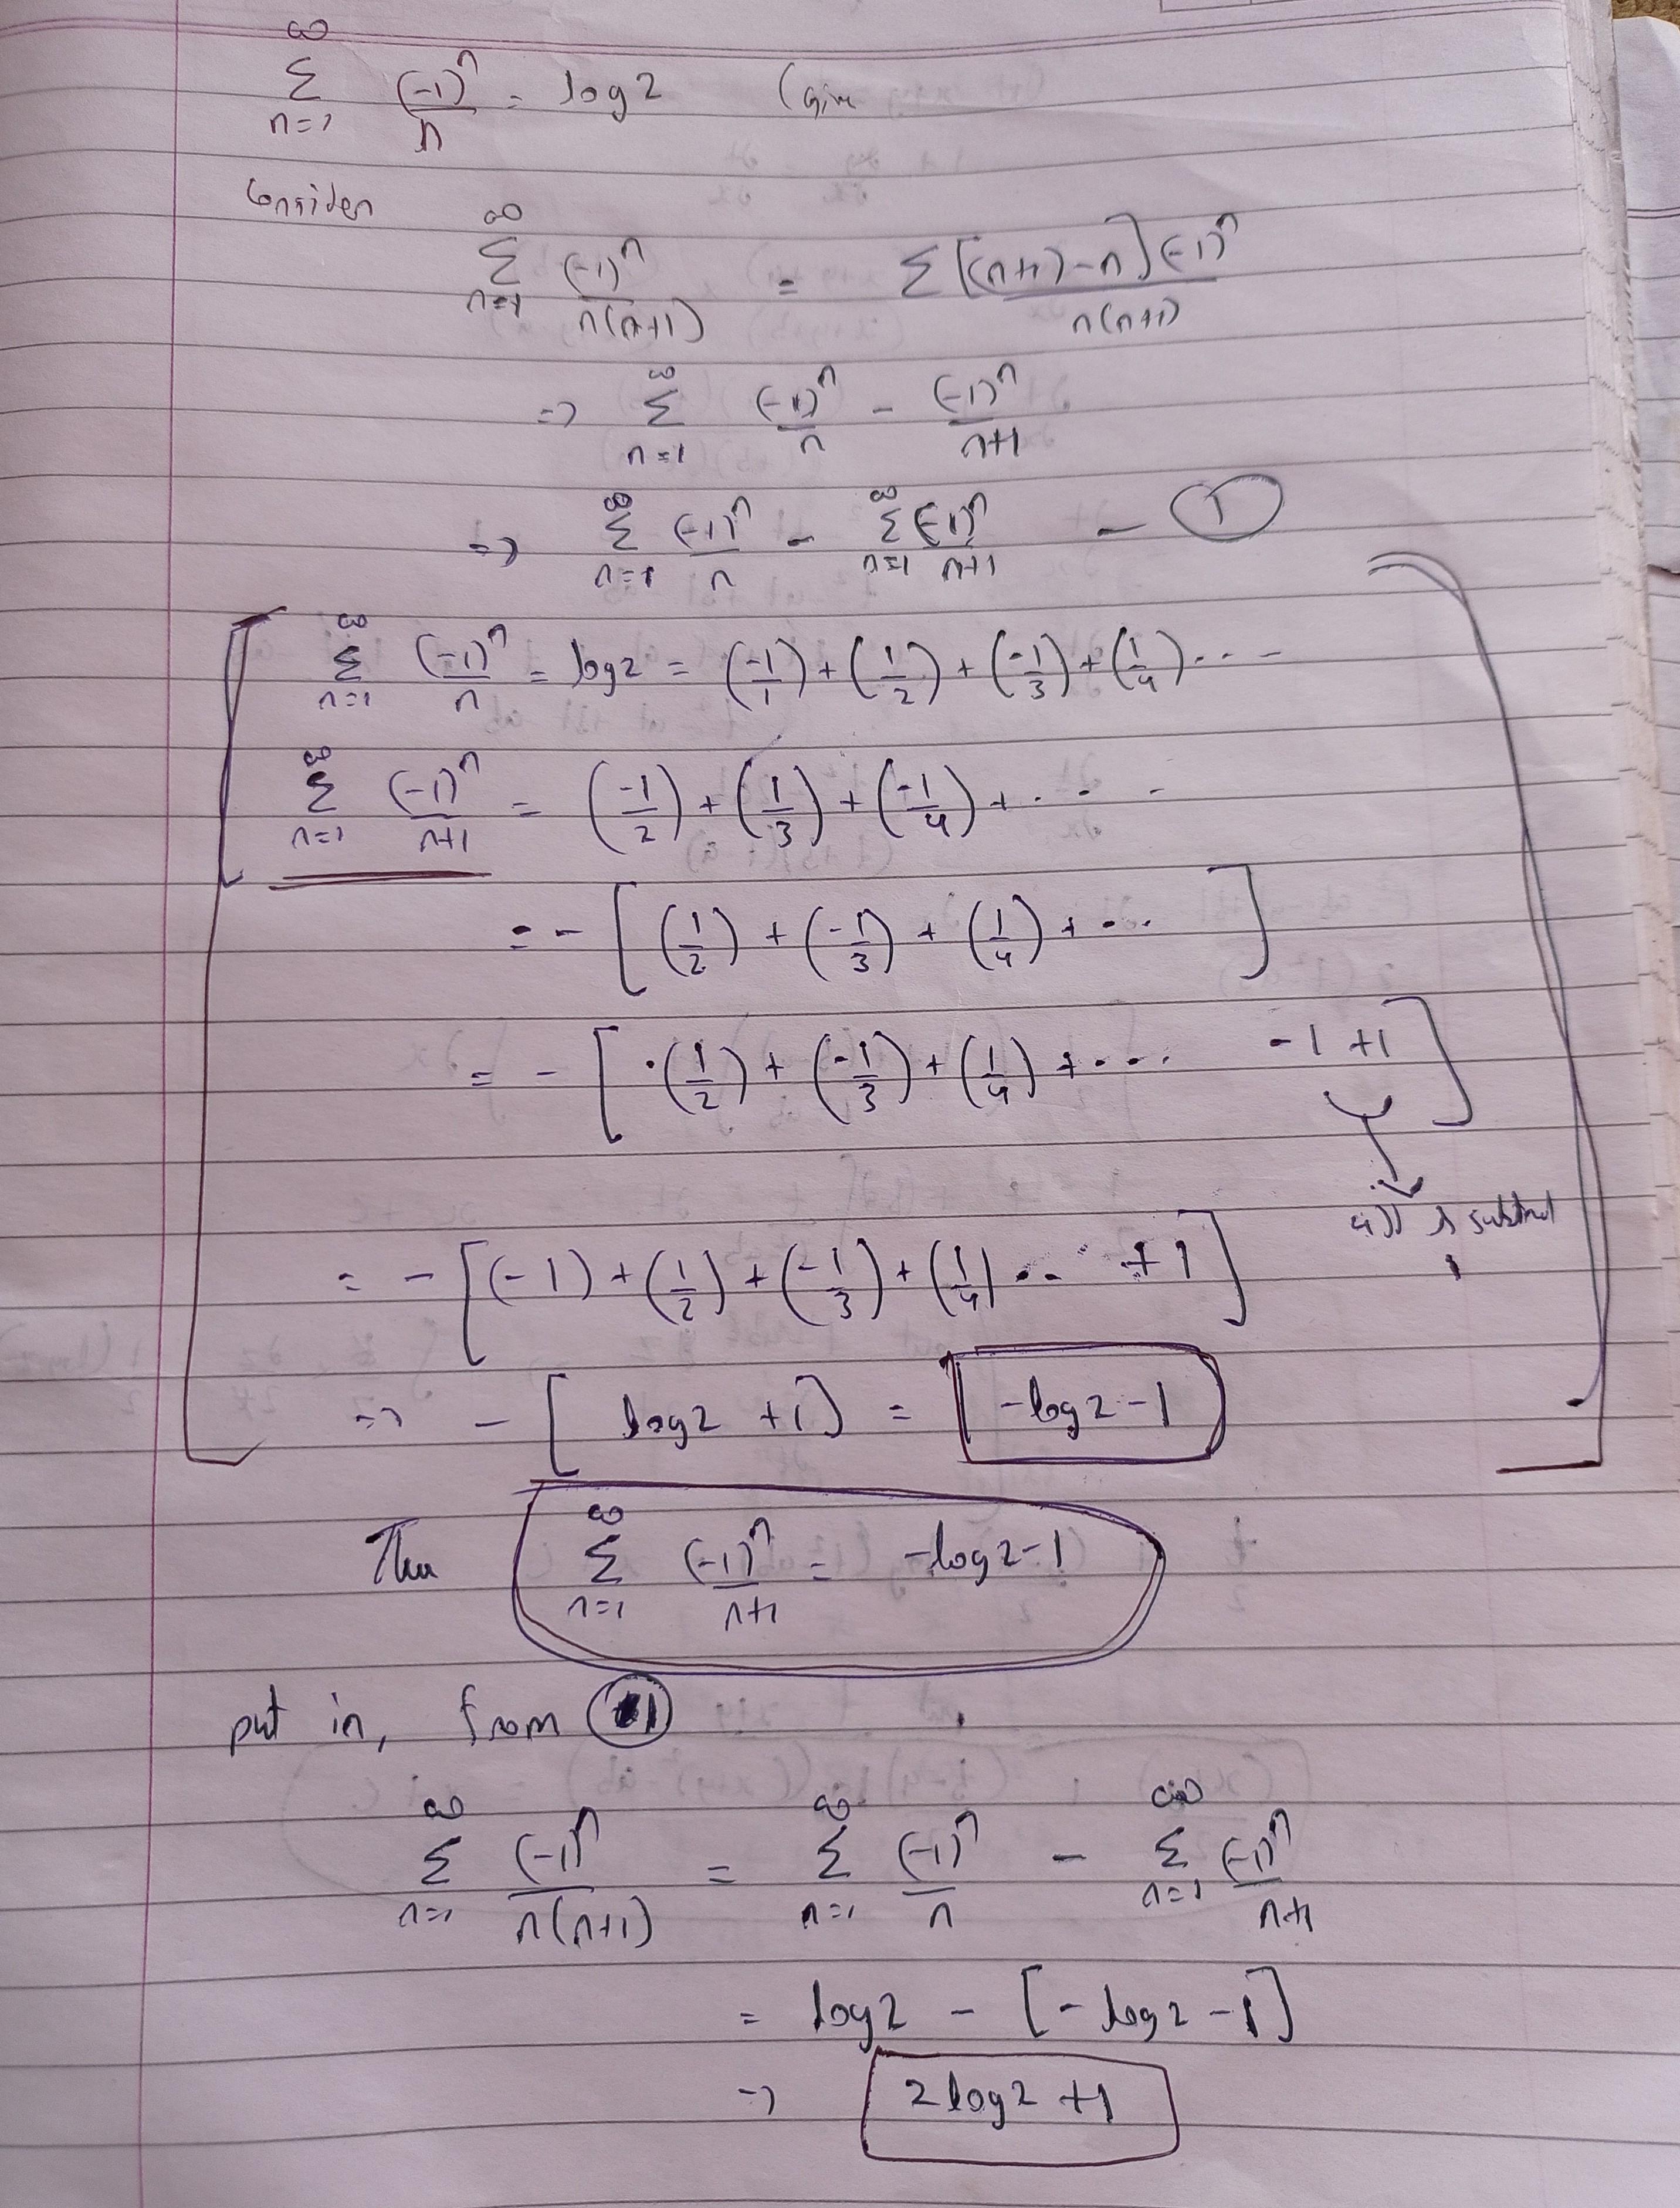 ∞ Σ n=1 (-1)^n / n = log 2 (give
Consider
∞ Σ n=1 (-1)^n / n(n+1) = Σ [(n+1)-n](-1)^n / n(n+1)
=> ∞ Σ n=1 (-1)^n / n - (-1)^n / n+1
=> ∞ Σ n=1 (-1)^n / n - ∞ Σ n=1 (-1)^n / n+1 - ①
∞ Σ n=1 (-1)^n / n = log 2 = (-1/1) + (1/2) + (-1/3) + (1/4) ....
∞ Σ n=1 (-1)^n / n+1 = (-1/2) + (1/3) + (-1/4) + ....
= - [(1/2) + (-1/3) + (1/4) + ... ]
= - [(1/2) + (-1/3) + (1/4) + .... -1 +1]
1
= - [(-1) + (1/2) + (-1/3) + (1/4) ... +1]
=> - [log 2 +1] = -log 2 -1
∞ Σ n=1 (-1)^n / n+1 = -log 2 -1
put in, from ①
∞ Σ n=1 (-1)^n / n(n+1) = ∞ Σ n=1 (-1)^n / n - ∞ Σ n=1 (-1)^n / n+1
= log 2 - [-log 2 -1]
=> 2 log 2 +1